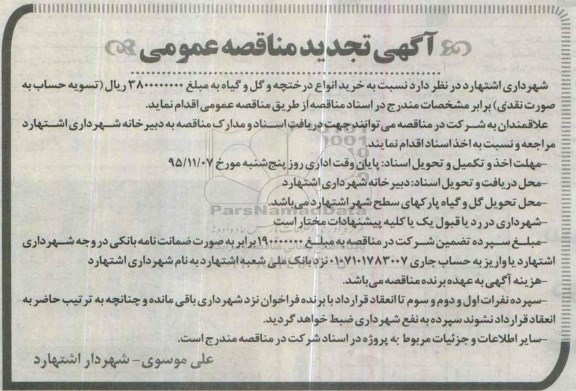 آگهی تجدید مناقصه عمومی
شهرداری اشتهارد در نظر دارد نسبت به خرید انواع درختچه و گل و گیاه به مبلغ ۳۸۰۰۰۰۰۰۰۰ ریال (تسویه حساب به
صورت نقدی) برابر مشخصات مندرج در اسناد مناقصه از طریق مناقصه عمومی اقدام نماید.
علاقمندان به شرکت در مناقصه می توانند جهت دریافت اسناد و مدارک مناقصه به دبیرخانه شهرداری اشتهارد
مراجعه و نسبت به اخذ اسناد اقدام نمایند.
-مهلت اخذ و تکمیل و تحویل اسناد: پایان وقت اداری روز پنج‌شنبه مورخ ۹۵/۱۱/۰۷
-محل دریافت و تحویل اسناد: دبیرخانه شهرداری اشتهارد
-محل تحویل گل و گیاه پارکهای سطح شهر اشتهارد می‌باشد.
-شهرداری در رد یا قبول یک یا کلیه پیشنهادات مختار است
-مبلغ سپرده تضمین شرکت در مناقصه به مبلغ ۱۹۰۰۰۰۰۰۰ برابر به صورت ضمانت نامه بانکی در وجه شهرداری
اشتهارد یا واریز به حساب جاری ۰۱۰۷۱۰۱۷۸۳۰۰۷ نزد بانک ملی شعبه اشتهارد به نام شهرداری اشتهارد
-هزینه آگهی به عهده برنده مناقصه می‌باشد.
-سپرده نفرات اول و دوم و سوم تا انعقاد قرارداد با برنده فراخوان نزد شهرداری باقی مانده و چنانچه به ترتیب حاضر به
انعقاد قرارداد نشوند سپرده به نفع شهرداری ضبط خواهد گردید.
-سایر اطلاعات و جزئیات مربوط به پروژه در اسناد شرکت در مناقصه مندرج است.
علی موسوی- شهردار اشتهارد
ParsNamadData